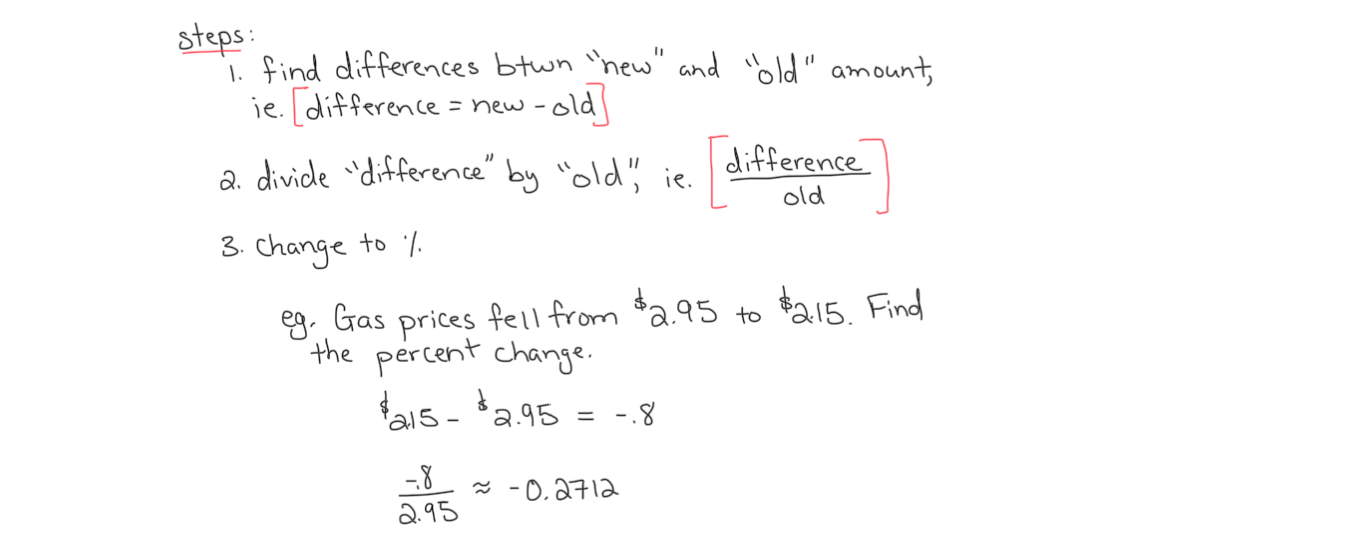 steps:
1. find differences btwn "new" and "old" amount,
ie. [difference = new - old]
2. divide "difference" by "old", ie. [difference/old]
3. Change to %.
eg. Gas prices fell from $2.95 to $2.15. Find
the percent change.
$2.15 - $2.95 = -.8
-.8/2.95 ≈ -0.2712